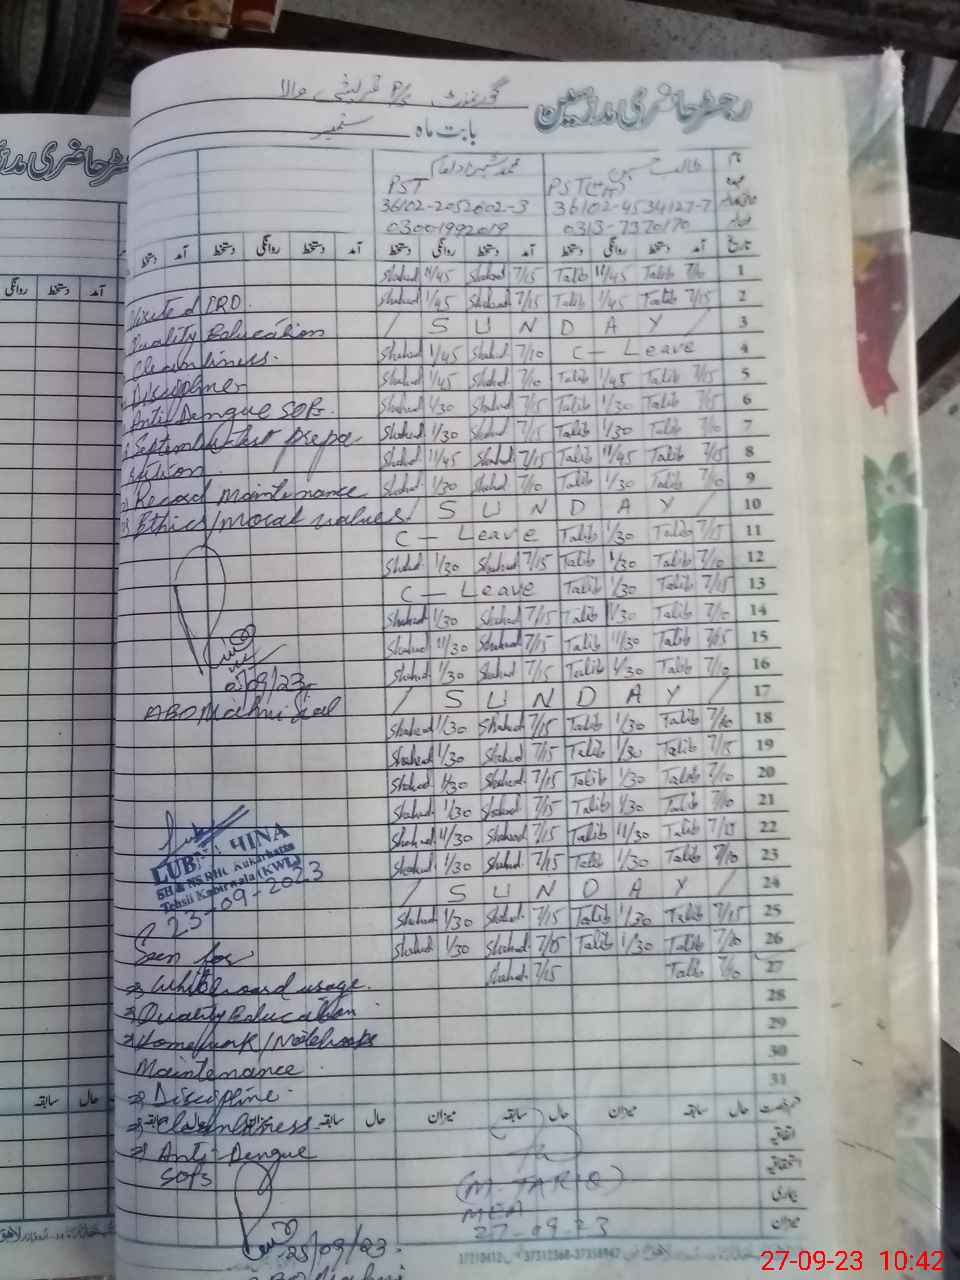 رجسٹر حاضری مدرسین
گورنمنٹ P/S قریشی والا
بابت ماہ ستمبر
نام
PST PST
36102-2052602-3 36102-4534127-7
03001992019 0313-7370170
دستخط آمد دستخط روانگی دستخط آمد دستخط روانگی دستخط آمد تاریخ
Shahad 11/45 Shahad 7/15 Talib 11/45 Talib 7/10 1
Shahad 1/45 Shahad 7/15 Talib 1/45 Talib 7/15 2
/ S U N D A Y / 3
Shahad 1/45 Shahad 7/10 C - Leave 4
Shahad 1/45 Shahad 7/10 Talib 1/45 Talib 7/15 5
Shahad 1/30 Shahad 7/15 Talib 1/30 Talib 7/15 6
Shahad 1/30 Shahad 7/15 Talib 1/30 Talib 7/10 7
Shahad 11/45 Shahad 7/15 Talib 11/45 Talib 7/15 8
Shahad 1/30 Shahad 7/10 Talib 1/30 Talib 7/10 9
/ S U N D A Y / 10
C - Leave Talib 1/30 Talib 7/15 11
Shahad 1/30 Shahad 7/15 Talib 1/30 Talib 7/10 12
C - Leave Talib 1/30 Talib 7/15 13
Shahad 1/30 Shahad 7/15 Talib 1/30 Talib 7/10 14
Shahad 11/30 Shahad 7/15 Talib 11/30 Talib 7/15 15
Shahad 1/30 Shahad 7/15 Talib 1/30 Talib 7/10 16
/ S U N D A Y / 17
Shahad 1/30 Shahad 7/15 Talib 1/30 Talib 7/10 18
Shahad 1/30 Shahad 7/15 Talib 1/30 Talib 7/15 19
Shahad 1/30 Shahad 7/15 Talib 1/30 Talib 7/10 20
Shahad 1/30 Shahad 7/15 Talib 1/30 Talib 7/10 21
Shahad 11/30 Shahad 7/15 Talib 11/30 Talib 7/15 22
Shahad 1/30 Shahad 7/15 Talib 1/30 Talib 7/10 23
/ S U N D A Y / 24
Shahad 1/30 Shahad 7/15 Talib 1/30 Talib 7/15 25
Shahad 1/30 Shahad 7/15 Talib 1/30 Talib 7/10 26
Shahad 7/15 Talib 7/10 27
28
29
30
31
سابقہ حال میزان سابقہ حال میزان سابقہ حال
میزان
(M. TARIQ)
MEA
27-09-23
Visited PRO.
Quality Education
Cleanliness.
Discipline
Anti Dengue SOPs.
September test prepa
ration
Record Maintenance
Ethics/moral values
05/09/23
LUBNA HINA
Tehsil Kabirwala (KWL)
23-09-2023
Seen for
Whiteboard usage.
Quality Education
Homework/Notebooks
Maintenance.
Discipline.
Cleanliness
Anti-Dengue
SOPs
25/09/23.
27-09-23 10:42